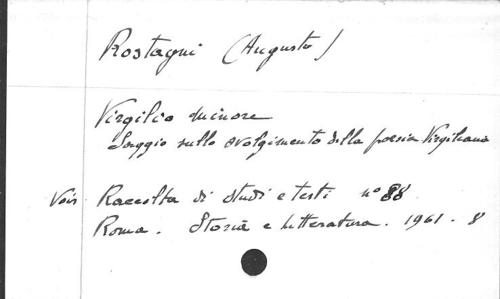 Rostagni (Augusto)
Virgilio minore
Saggio sullo svolgimento della poesia Virgiliana
Voir Raccolta di studi e testi nº 88
Roma. Storia e letteratura. 1961. 8